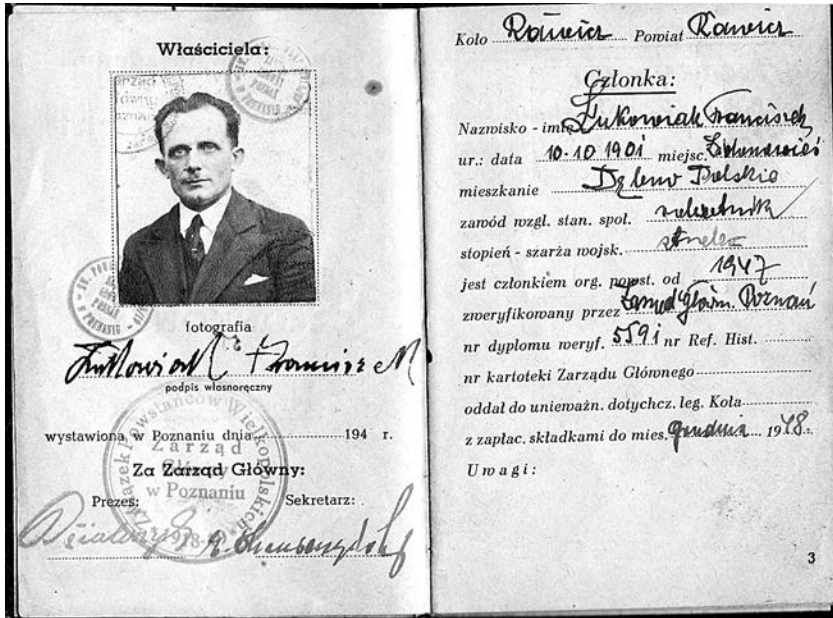 Właściciela:
fotografia
podpis własnoręczny
wystawiona w Poznaniu dnia 194 r.
Związek Powstańców Wielkopolskich
Zarząd
Główny
w Poznaniu
Za Zarząd Główny:
Prezes: Sekretarz:
Koło Rawicz Powiat Rawicz
Członka:
Nazwisko - imię Łukowiak Franciszek
ur.: data 10.10 1901 miejsc.
mieszkanie Dębno Polskie
zawód wzgl. stan. społ.
stopień - szarża wojsk. strzelec
jest członkiem org. powst. od 1947
zweryfikowany przez Zarząd Główn. Poznań
nr dyplomu weryf. 5591 nr Ref. Hist.
nr kartoteki Zarządu Głównego
oddał do unieważn. dotychcz. leg. Koła
z zapłac. składkami do mies. grudnia 1948.
Uwagi:
3